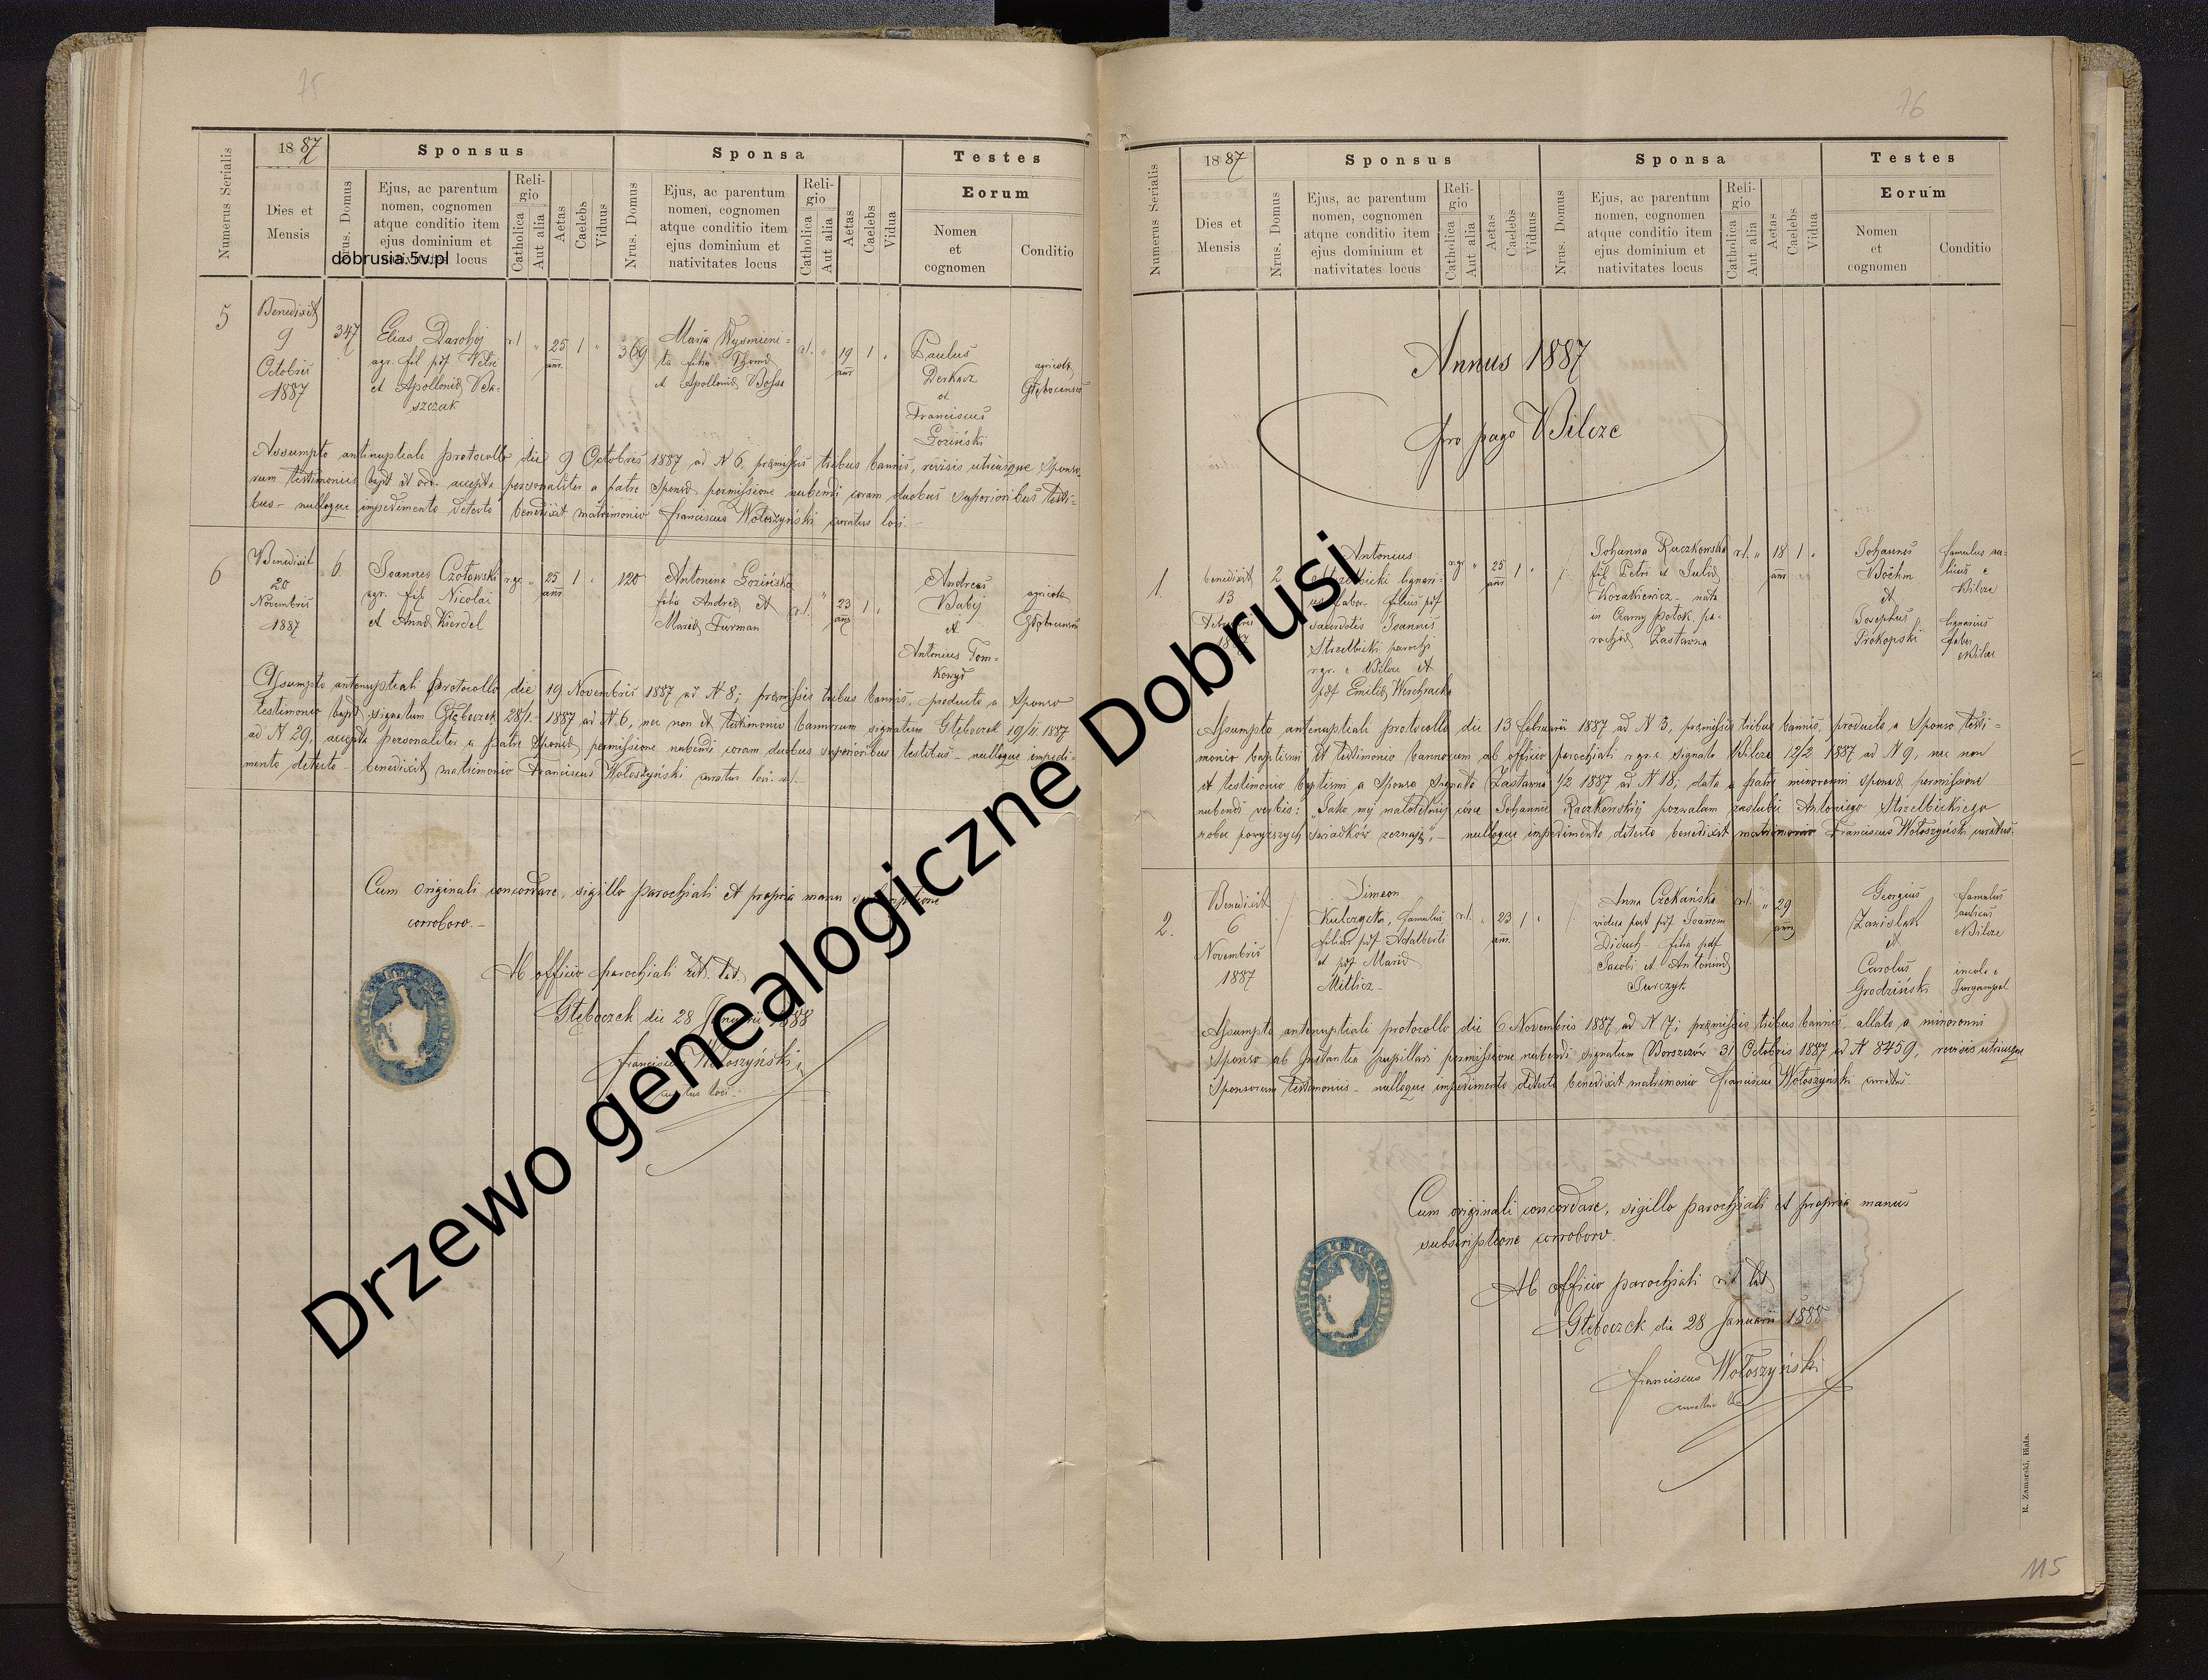 75
1887
Sponsus
Sponsa
Testes
Numerus Serialis
Dies et
Mensis
Nrus. Domus
Ejus, ac parentum
nomen, cognomen
atque conditio item
ejus dominium et
nativitates locus
Reli-
gio
Catholica
Aut alia
Aetas
Caelebs
Viduus
Nrus. Domus
Ejus, ac parentum
nomen, cognomen
atque conditio item
ejus dominium et
nativitates locus
Reli-
gio
Catholica
Aut alia
Aetas
Caelebs
Vidua
Eorum
Nomen
et
cognomen
Conditio
dobrusia.5v.pl
5
Benedixit
9
Octobris
1887
347
Elias Darohij
agr. fil. pdf. Petri
et Apollonia
szczak
r.l.
25
ann.
1
369
Maria Wyśmieni-
ta filia Thoma
et Apollonia Bossa
r.l.
19
ann
1
Paulus
Derkacz
et
Franciscus
Łoziński
agricola
Głęboczensis
Assumpto antinuptiali protocollo die 9 Octobris 1887 ad N 6. præmissis tribus bannis, revisis utriusque Sponso-
rum testimoniis bapt et ord. accepta personaliter a patre Sponsa permissione nubendi coram duobus superioribus testi-
bus - nulloque impedimento detecto benedixit matrimonio Franciscus Wołoszyński curatus loci.
6
Benedixit
20
Novembris
1887
6
Joannes Czołowski
agr. fil. Nicolai
et Anna Kierdel
r.gr.
25
ann
1
120
Antonina Łozińska
filia Andrea et
Maria Furman
r.l.
23
ann
1
Andreas
Babij
et
Antonius Tom-
Kowyd
agricola
Assumpto antenuptiali protocollo die 19 Novembris 1887 ad N 8; præmissis tribus bannis, producto a Sponso
testimonio bapt signatum Głęboczek 28/1 1887 ad N 6, nec non et testimonio bannorum signatum Głęboczek 19/11 1887
ad N 29, accepta personaliter a patre Sponsa permissione nubendi coram duobus superioribus testibus - nulloque impedi-
mento detecto - benedixit matrimonio Franciscus Wołoszyński curatus loci
Cum originali concordare, sigillo parochiali et propria manu
corroboro.-
Ab officio parochiali rit. lat.
Głęboczek die 28 Januarii 1888
Franciscus Wołoszyński
curatus loci
76
1887
Sponsus
Sponsa
Testes
Numerus Serialis
Dies et
Mensis
Nrus. Domus
Ejus, ac parentum
nomen, cognomen
atque conditio item
ejus dominium et
nativitates locus
Reli-
gio
Catholica
Aut alia
Aetas
Caelebs
Viduus
Nrus. Domus
Ejus, ac parentum
nomen, cognomen
atque conditio item
ejus dominium et
nativitates locus
Reli-
gio
Catholica
Aut alia
Aetas
Caelebs
Vidua
Eorum
Nomen
et
cognomen
Conditio
Annus 1887
pro pago Bilcze
1.
benedixit
13
Februaris
2
Antonius
Strzelbicki lignari-
us faber filius pdf
sacerdotis Joannis
Strzelbicki parochi
r.gr. e Bilcze et
pdf Emilia
r.gr
25
ann
1
Johanna Raczkowska
fil. Petri et Julia
Kozakiewicz - nata
in Czarny Potok, pa-
rochia Zastawna
r.l.
18
ann
1
Johannes
Böhm
et
Josephus
Prokopski
famulus au-
licus e
Bilcze
lignarius
faber
Bilcze
Assumpto antenuptiali protocollo die 13 Februarii 1887 ad N 3, præmissis tribus bannis, producto a Sponso testi-
monio baptismi et testimonio bannorum ab officio parochiali r.gr.c. signato Bilcze 12/2 1887 ad N 9, nec non
et testimonio baptismi a Sponsa signato Zastawna 1/2 1887 ad N 18; data a patre minorenni sponsa permissione
nubendi verbis: "Jako mej małoletniej córce Johannie Raczkowskiej pozwalam zaślubić Antoniego Strzelbickiego
wobec powyższych świadków zeznaję", - nulloque impedimento detecto benedixit matrimonio Franciscus Wołoszyński curatus.
2.
Benedixit
6
Novembris
1887
Simeon
Kulczycki, famulus
filius pdf Adalberti
et pdf Maria
Mitlicz
r.l.
23
ann.
1
Anna Czekańska
vidua post pdf Joannem
Diduch - filia pdf
Jacobi et Antonina
Jurczyk
r.l.
29
ann
Georgius
Zawislak
et
Carolus
Grodziński
famulus
aulicus
Bilcze
incola e
Assumpto antenuptiali protocollo die 6 Novembris 1887 ad N 7; præmissis tribus bannis, allato a minorenni
Sponso ab Instantia pupillari permissione nubendi signatum Borszczów 31 Octobris 1887 ad N 8459, revisis utriusque
Sponsorum testimoniis - nulloque impedimento detecto benedixit matrimonio Franciscus Wołoszyński curatus.
Cum originali concordare, sigillo parochiali et propria manus
subscriptione corroboro.
Ab officio parochiali rit lat
Głęboczek die 28 Januarii 1888
Franciscus Wołoszyński
R. Zamarski, Biala.
115
Drzewo genealogiczne Dobrusi